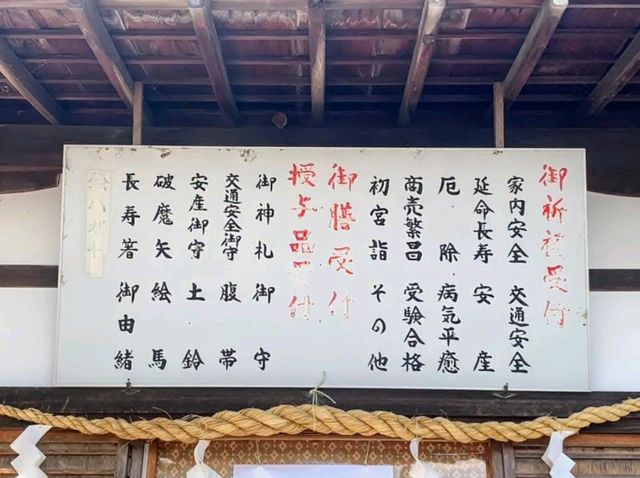 御祈祷受付
家内安全 交通安全
延命長寿 安産
厄除 病気平癒
商売繁昌 受験合格
初宮詣 その他
御膳受付
授与品受付
御神札 御守
交通安全御守 腹帯
安産御守 土鈴
破魔矢 絵馬
長寿箸 御由緒